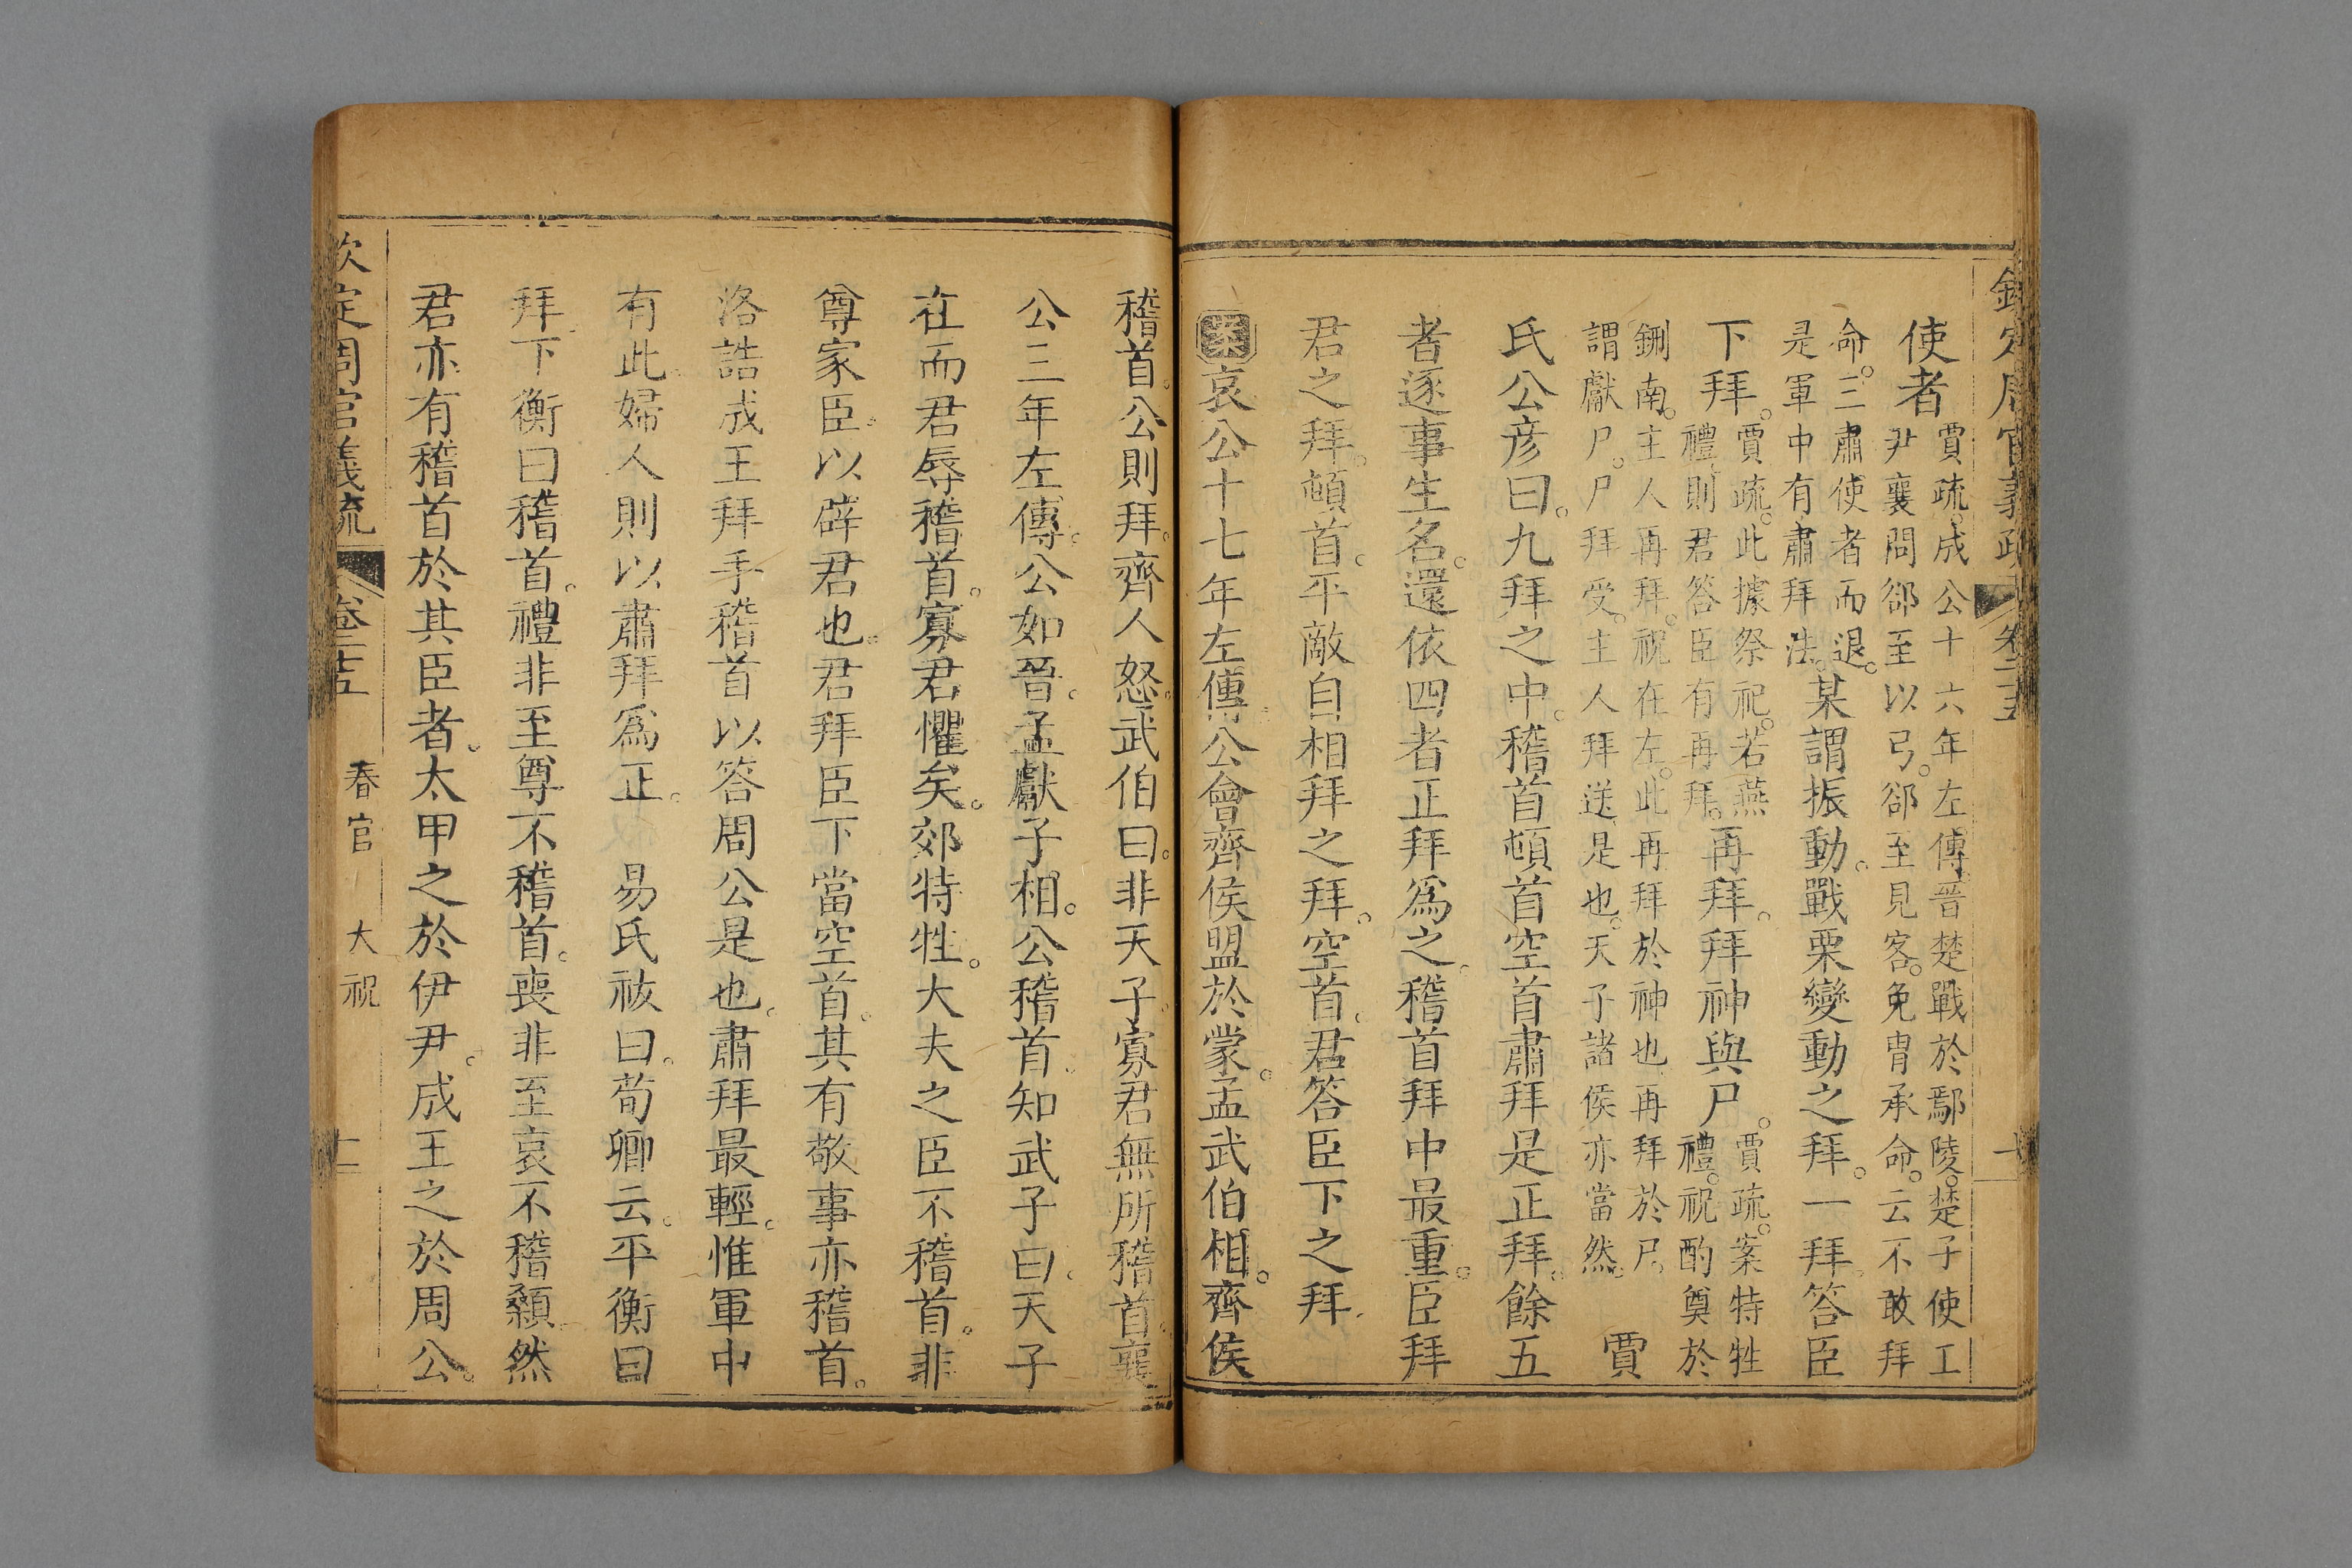 欽定周官義疏 卷二十五 十
使者賈疏。成公十六年左傳。晉楚戰於鄢陵。楚子使工
尹襄問郤至以弓。郤至見客。免冑承命。云不敢拜
命。三肅使者而退。
是軍中有肅拜法。某謂振動。戰栗變動之拜。一拜。答臣
下拜。賈疏。此據祭祀。若燕
禮。則君答臣有再拜。再拜。拜神與尸。賈疏。案特牲
禮。祝酌奠於
鉶南。主人再拜。祝在左。此再拜於神也再拜於尸。
謂獻尸。尸拜受。主人拜送是也。天子諸侯亦當然。 賈
氏公彦曰。九拜之中。稽首頓首空首肅拜是正拜。餘五
者逐事生名。還依四者正拜爲之。稽首拜中最重。臣拜
君之拜。頓首。平敵自相拜之拜。空首。君答臣下之拜。
案哀公十七年左傳。公會齊侯盟於蒙。孟武伯相。齊侯
稽首。公則拜。齊人怒。武伯曰。非天子。寡君無所稽首。襄
公三年左傳。公如晉。孟獻子相。公稽首。知武子曰。天子
在而君辱稽首。寡君懼矣。郊特牲。大夫之臣不稽首。非
尊家臣。以辟君也。君拜臣下當空首。其有敬事亦稽首。
洛誥成王拜手稽首以答周公是也。肅拜最輕。惟軍中
有此。婦人則以肅拜爲正。 易氏祓曰。荀卿云。平衡曰
拜。下衡曰稽首。禮非至尊不稽首。喪非至哀不稽顙。然
君亦有稽首於其臣者。太甲之於伊尹。成王之於周公。
欽定周官義疏 卷二十五 春官 大祝 十一